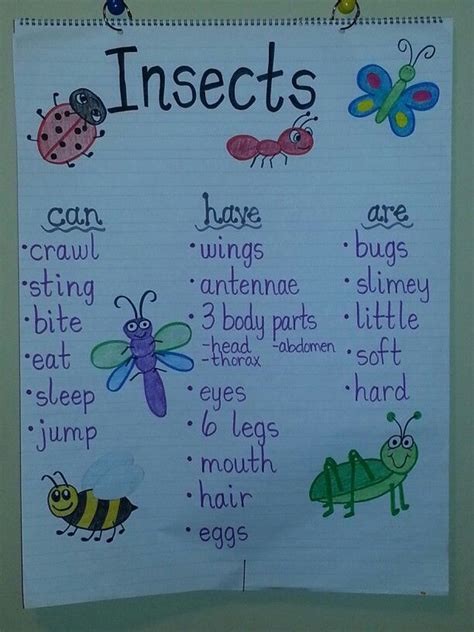 Insects
can
•crawl
•sting
•bite
•eat
•sleep
•jump
have
•wings
•antennae
•3 body parts
-head -abdomen
-thorax
•eyes
•6 legs
•mouth
•hair
•eggs
are
•bugs
•slimey
•little
•soft
•hard